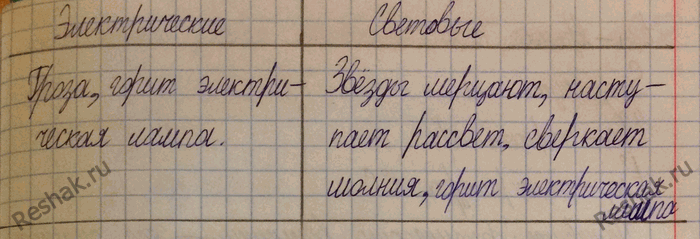 Электрические Световые
Гроза, горит электри- Звёзды мерцают, насту-
ческая лампа. пает рассвет, сверкает
молния, горит электрическая
лампа
Reshak.ru
Reshak.ru